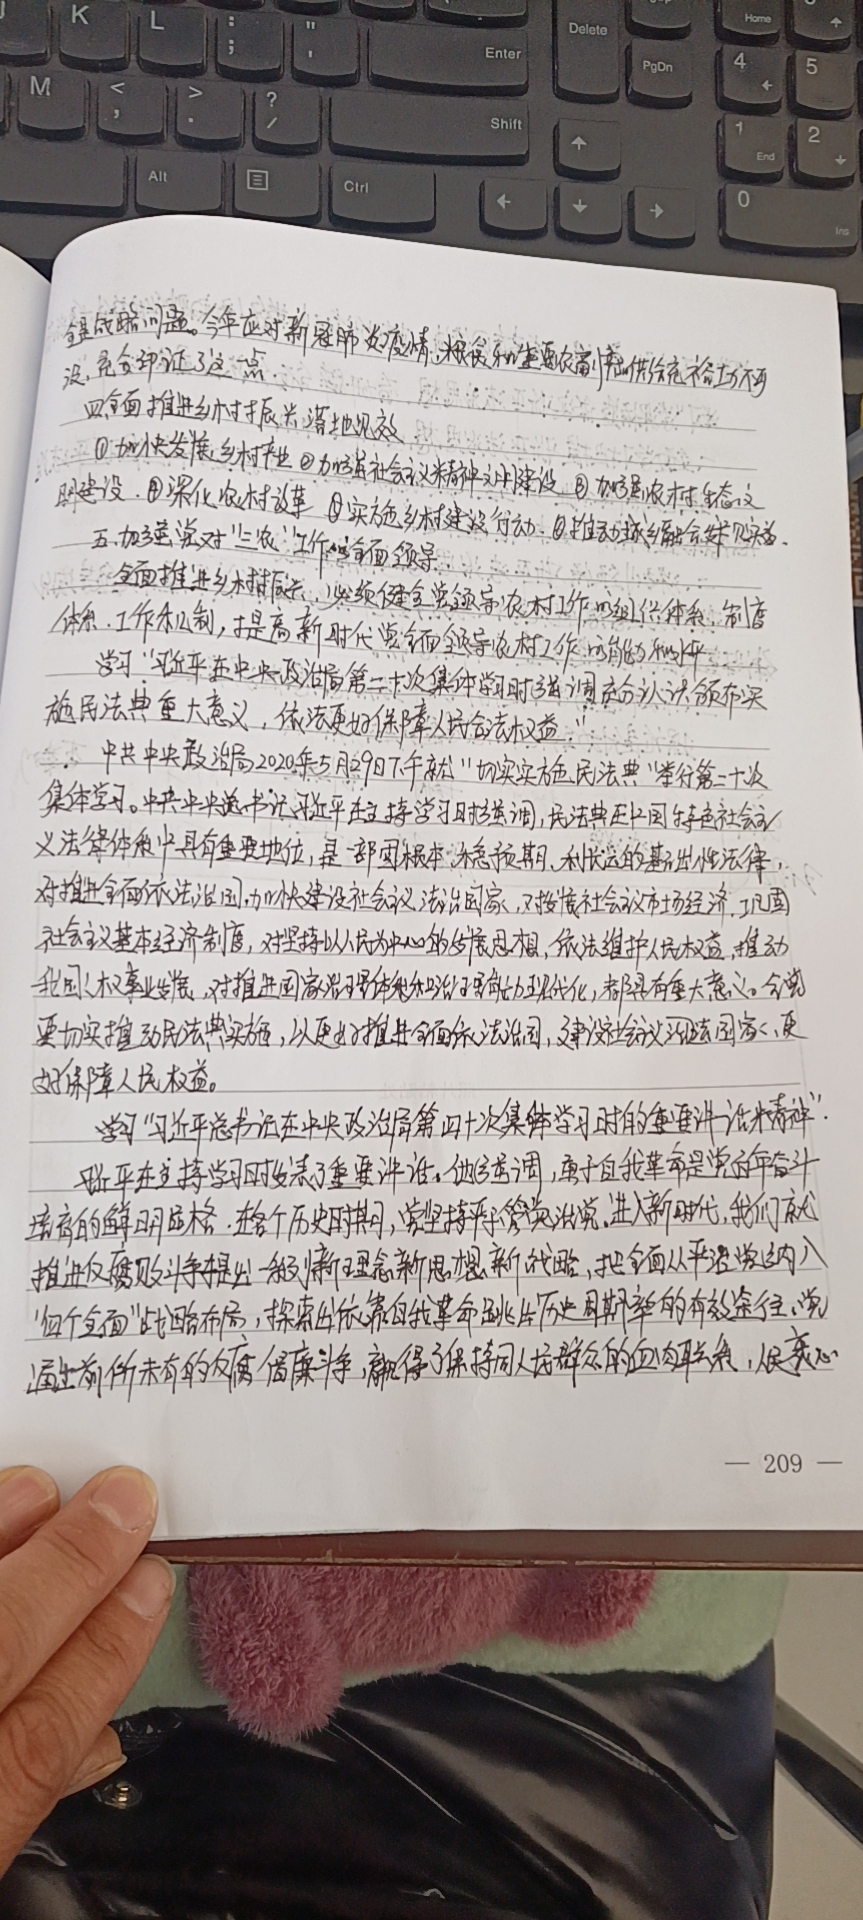 J K L : ; " ' Enter Delete PgDn Home
M < , > . ? / Shift 4 5
Alt Ctrl 1 End 2 0 Ins
全是战略问题。今年应对新冠肺炎疫情,粮食和重要农副产品供给充裕功不可
没,充分印证了这一点.
四全面推进乡村振兴落地见效
①加快发展乡村产业 ②加强社会主义精神文明建设 ③加强农村生态文
明建设.④深化农村改革 ⑤实施乡村建设行动.⑥推动城乡融合发展见实效.
五.加强党对“三农”工作的全面领导.
全面推进乡村振兴,必须健全党领导农村工作的组织体系、制度
体系、工作机制,提高新时代党全面领导农村工作的能力和水平
学习“习近平在中央政治局第二十次集体学习时强调充分认识颁布实
施民法典重大意义,依法更好保障人民合法权益.”
中共中央政治局2020年5月29日下午就“切实实施民法典”举行第二十次
集体学习。中共中央总书记习近平在主持学习时强调,民法典在中国特色社会主
义法律体系中具有重要地位,是一部固根本、稳预期、利长远的基础性法律,
对推进全面依法治国,加快建设社会主义法治国家,对发展社会主义市场经济、巩固
社会主义基本经济制度,对坚持以人民为中心的发展思想,依法维护人民权益、推动
我国人权事业发展,对推进国家治理体系和治理能力现代化,都具有重大意义。全党
要切实推动民法典实施,以更好推进全面依法治国,建设社会主义法治国家、更
好保障人民权益。
学习“习近平总书记在中央政治局第四十次集体学习时的重要讲话精神”.
习近平在主持学习时发表了重要讲话。他强调,勇于自我革命是党百年奋斗
培育的鲜明品格.在各个历史时期,党坚持严于管党治党.进入新时代,我们就
推进反腐败斗争提出一系列新理念新思想新战略,把全面从严治党纳入
“四个全面”战略布局,探索出依靠自我革命跳出历史周期率的有效途径、党
逼出前所未有的反腐倡廉斗争,赢得了保持同人民群众的血肉联系,人民衷心
— 209 —